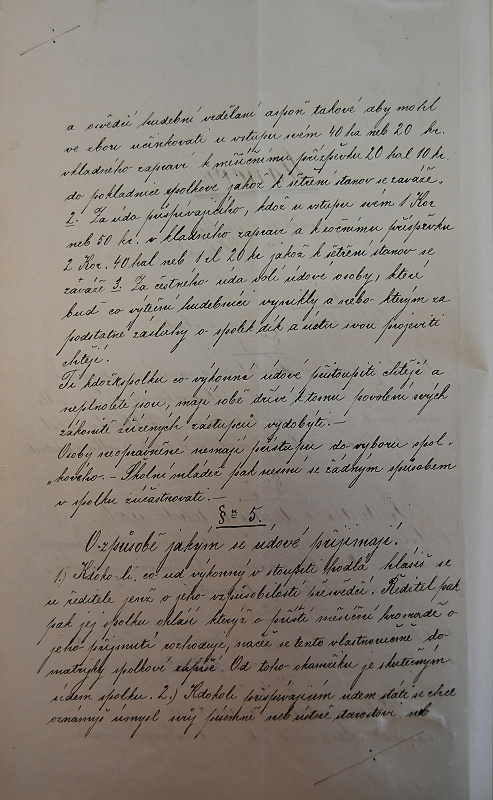 a osvědčí hudební vzdělaní aspoň takové aby mohl
ve sboru účinkovati u vstupu svém 40 ha neb 20 kr.
vkladného zapraví k měsíčnímu příspěvku 20 hal 10 kr.
do pokladnice spolkové jakož k šetření stanov se zaváže.
2. Za úda přispívajícího, kdož u vstupu svém 1 Kor
neb 50 kr. vkladného zapraví a k ročnímu příspěvku
2 Kor. 40 hal neb 1 zl 20 kr jakož k šetření stanov se
zaváže 3. Za čestného úda volí údové osoby, které
buď co výteční hudebníci vynikly a nebo kterým za
podstatné zásluhy o spolek dík a úctu svou projeviti
chtějí.
Ti kdož k spolku co výkonní údové přistoupiti chtějí a
neplnoletí jsou, mají sobě dříve k tomu povolení svých
zákonitě zřízených zástupců vydobýti. —
Osoby neoprávněné nemají přístupu do výboru spol„
„kového. — Školní mládež pak nesmí se žádným spůsobem
v spolku zúčastnovati. —
§ 5.
O způsobě jakým se údové přijímají.
1.) Kdoko-li co úd výkonný v stoupiti hodlá hlásiž se
u ředitele jenž o jeho vzpůsobilosti přesvědčí. Ředitel pak
pak jej spolku ohlásí kterýž o příští měsíční hromadě o
jeho přijmutí rozhoduje, načež se tento vlastnoručně do
matriky spolkové zapíše. Od toho okamžiku je skutečným
údem spolku. 2.) Kdokoli přispívajícím údem státi se chce
oznámyž úmysl svůj písemně neb ústně starostovi neb